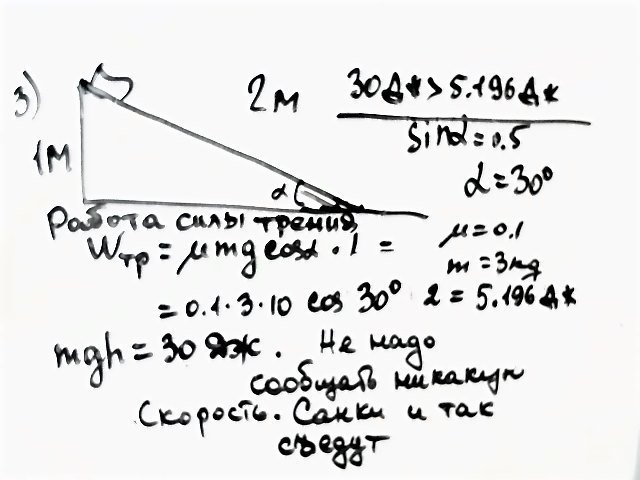 3)
2м
30Дж > 5.196Дж
1м
sinα=0.5
α=30°
α
Работа силы трения
μ=0.1
Wтр = μmg cosα · l =
m=3кg
= 0.1·3·10 cos 30° 2 = 5.196Дж
mgh = 30 Дж. Не надо
сообщать никакую
Скорость. Санки и так
съедут